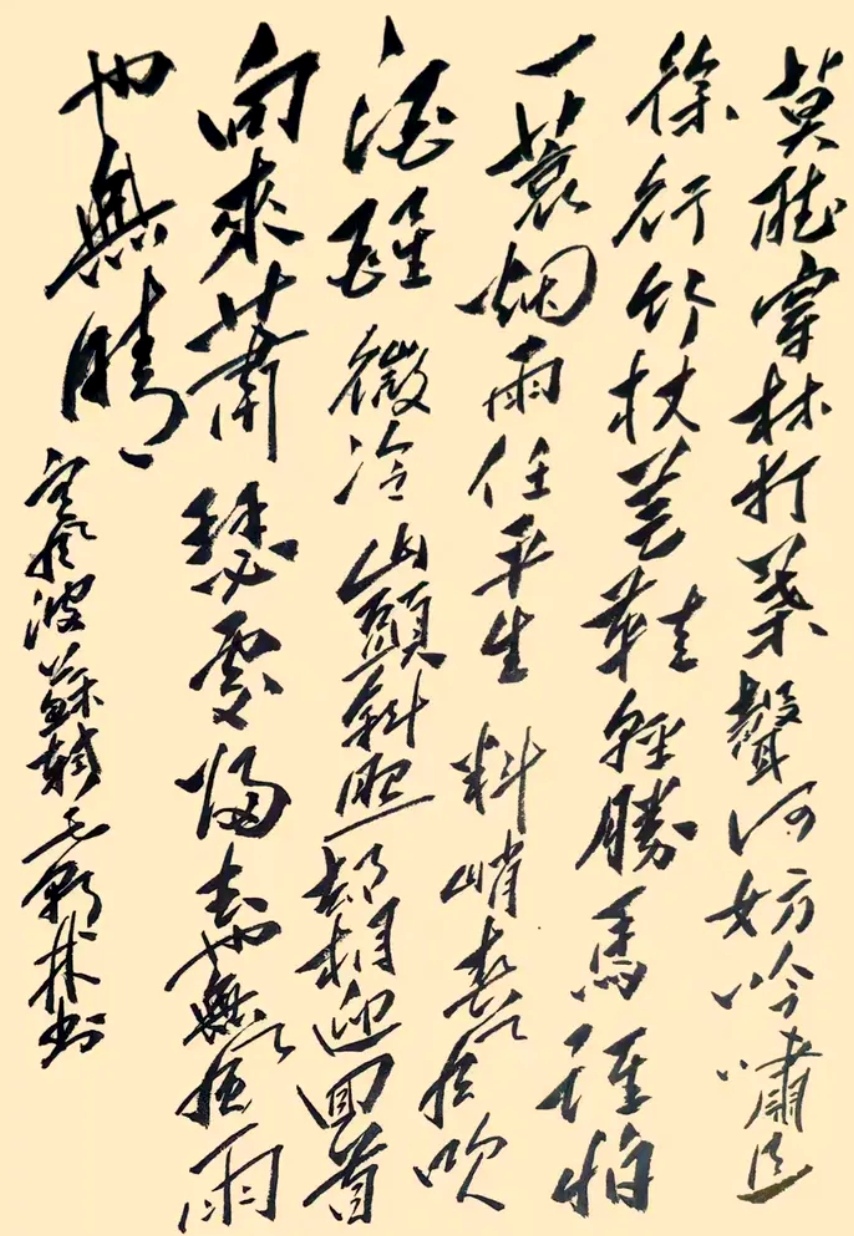 莫聽穿林打葉聲何妨吟嘯且
徐行竹杖芒鞋輕勝馬誰怕
一蓑烟雨任平生料峭春風吹
酒醒微冷山頭斜照却相迎回首
向來蕭瑟處歸去也無風雨
也無晴
定風波蘇軾毛林书